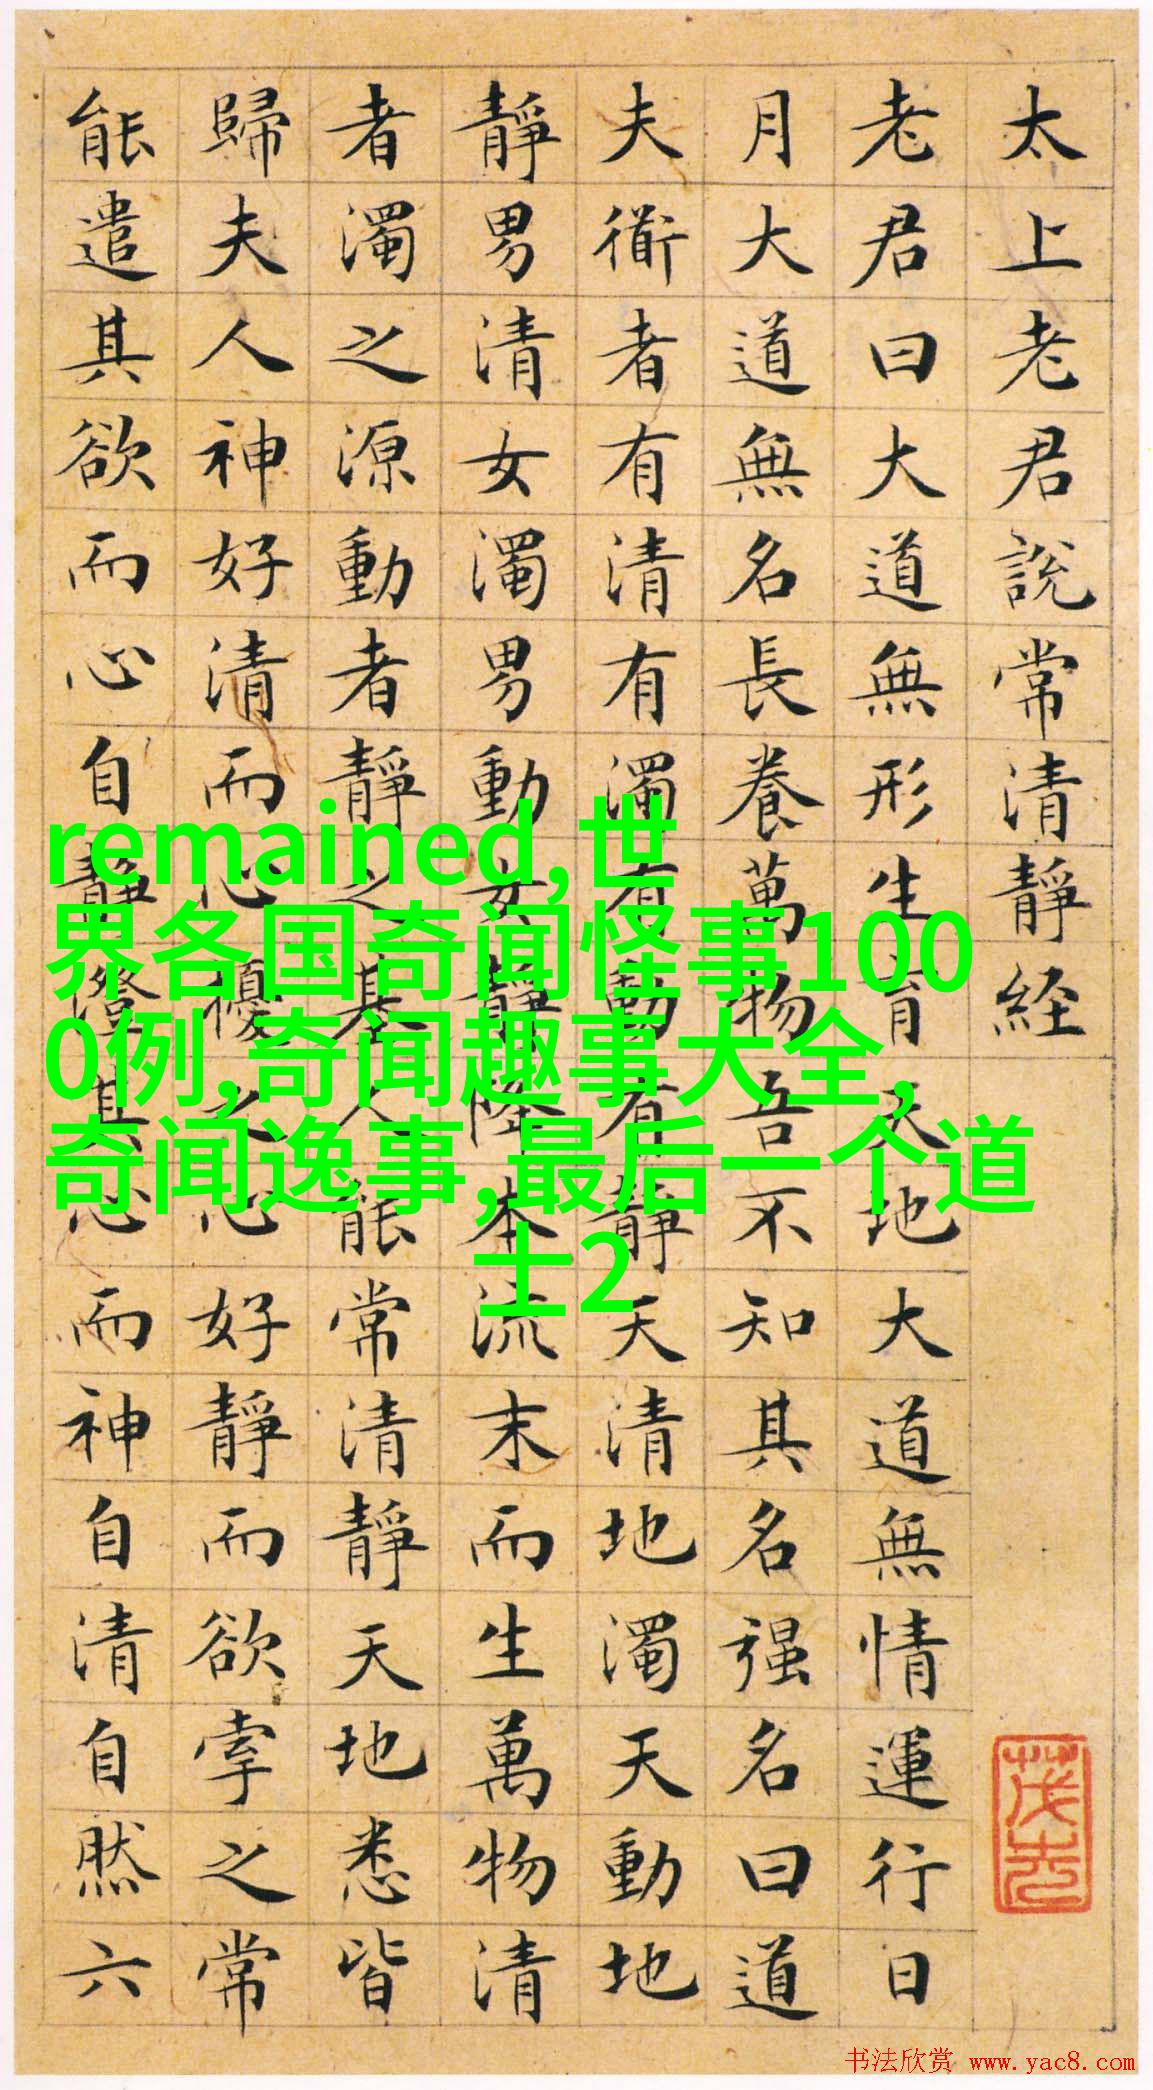 太上老君說常清靜経
老君曰大道無形生育天地大道無情運行日
月大道無名長養萬物吾不知其名强名曰道
夫衜者有清有濁有動有靜天清地濁天動地
靜男清女濁男動女靜降本流末而生萬物清
者濁之源動者靜之基人能常清靜天地悉皆
歸夫人神好清而心擾之心好靜而欲牽之常
能遣其欲而心自靜澄其心而神自清自然六
remained,世
界各国奇闻怪事100
0例,奇闻趣事大全,
奇闻逸事,最后一个道
士2
书法欣赏 www.yac8.com